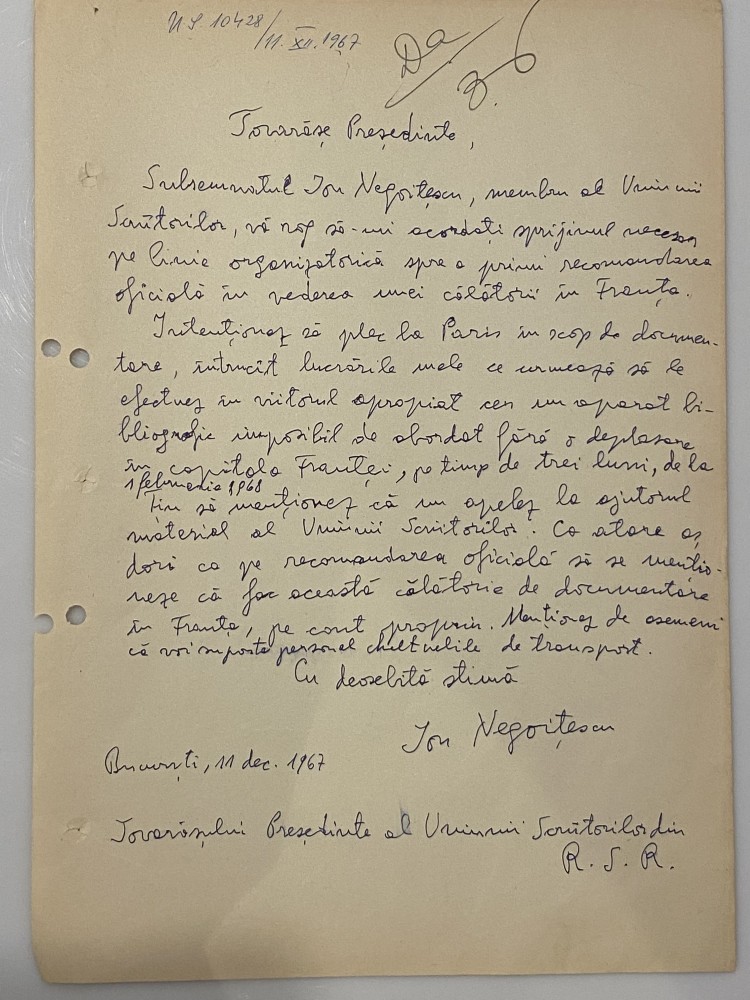 U.S. 10428/11.XII.1967
Da
Tovarășe Președinte,
Subsemnatul Ion Negoițescu, membru al Uniunii
Scriitorilor, vă rog să-mi acordați sprijinul necesar
pe linie organizatorică spre a primi recomandarea
oficială în vederea unei călătorii în Franța.
Intenționez să plec la Paris în scop de documen-
tare, întrucît lucrările mele ce urmează să le
efectuez în viitorul apropiat cer un aparat bi-
bliografic imposibil de abordat fără o deplasare
în capitala Franței, pe timp de trei luni, de la
1 februarie 1968
Țin să menționez că nu apelez la ajutorul
material al Uniunii Scriitorilor. Ca atare aș
dori ca pe recomandarea oficială să se mențio-
neze că fac această călătorie de documentare
în Franța, pe cont propriu. Menționez de asemeni
că voi suporta personal cheltuelile de transport.
Cu deosebită stimă
Ion Negoițescu
București, 11 dec. 1967
Tovarășului Președinte al Uniunii Scriitorilor din
R. S. R.